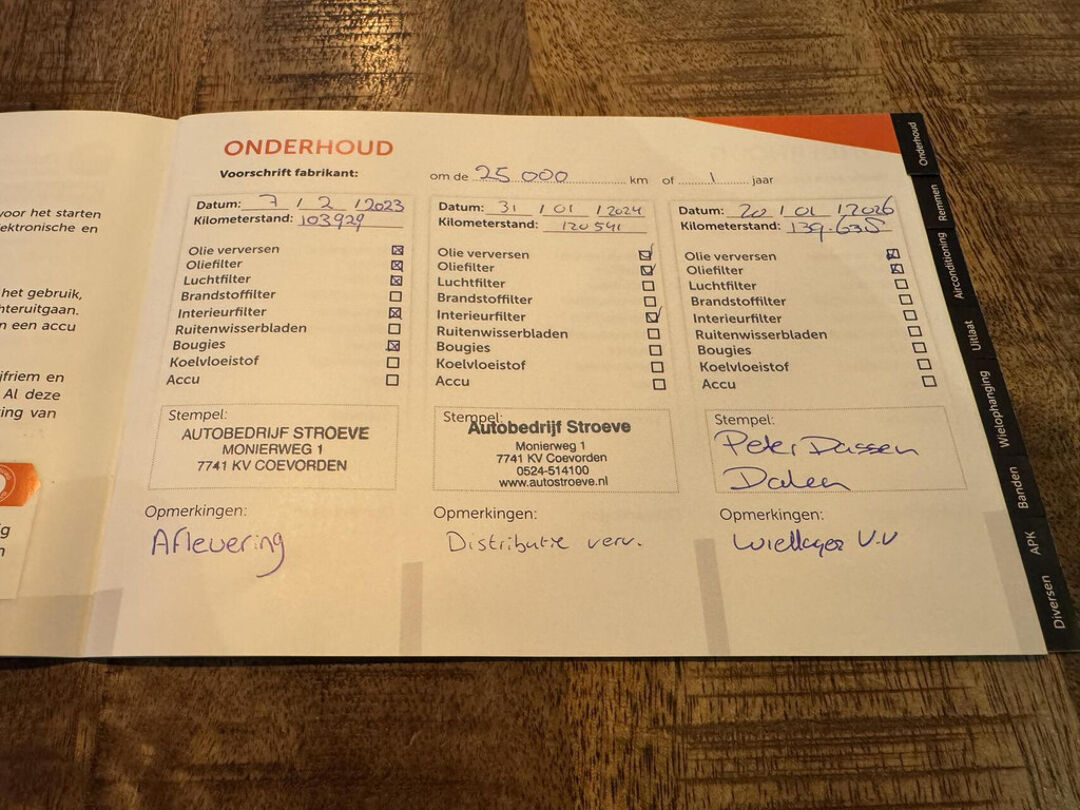 voor het starten
ektronische en
het gebruik,
hteruitgaan.
n een accu
jfriem en
Al deze
ing van
g
n
ONDERHOUD
Voorschrift fabrikant: om de 25 000 km of 1 jaar
Datum: 7 / 2 / 2023
Kilometerstand: 103929
Olie verversen
Oliefilter
Luchtfilter
Brandstoffilter
Interieurfilter
Ruitenwisserbladen
Bougies
Koelvloeistof
Accu
Stempel:
AUTOBEDRIJF STROEVE
MONIERWEG 1
7741 KV COEVORDEN
Opmerkingen:
Aflevering
Datum: 31 / 01 / 2024
Kilometerstand: 120541
Olie verversen
Oliefilter
Luchtfilter
Brandstoffilter
Interieurfilter
Ruitenwisserbladen
Bougies
Koelvloeistof
Accu
Stempel:
Autobedrijf Stroeve
Monierweg 1
7741 KV Coevorden
0524-514100
www.autostroeve.nl
Opmerkingen:
Distributie verv.
Datum: 20 / 01 / 2026
Kilometerstand: 139.635
Olie verversen
Oliefilter
Luchtfilter
Brandstoffilter
Interieurfilter
Ruitenwisserbladen
Bougies
Koelvloeistof
Accu
Stempel:
Peter Dassen
Dalen
Opmerkingen:
Wiellager V.V
Onderhoud
Remmen
Airconditioning
Uitlaat
Wielophanging
Banden
APK
Diversen